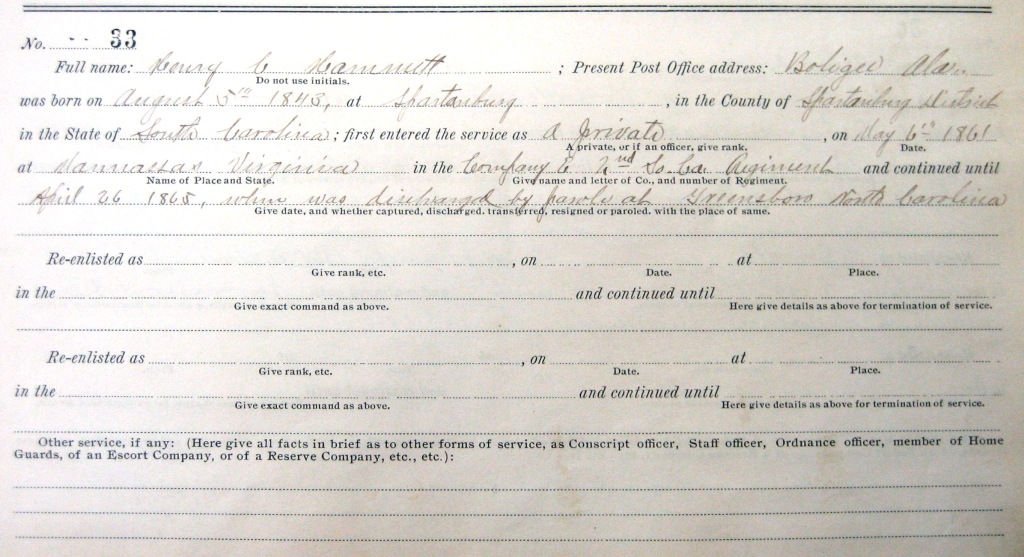 No. -- 33
Full name: Henry C Hammett ; Present Post Office address: Boligee Ala.
Do not use initials.
was born on August 5th 1843, at Spartanburg , in the County of Spartanburg District
in the State of South Carolina ; first entered the service as A private , on May 6th 1861
A private, or if an officer, give rank. Date.
at Mannassas Virginia in the Company E 2nd So. Ca. Regiment and continued until
Name of Place and State. Give name and letter of Co., and number of Regiment.
April 26 1865, when was discharged by parole at Greensboro North Carolina
Give date, and whether captured, discharged. transferred, resigned or paroled. with the place of same.
Re-enlisted as , on at
Give rank, etc. Date. Place.
in the and continued until
Give exact command as above. Here give details as above for termination of service.
Re-enlisted as , on at
Give rank, etc. Date. Place.
in the and continued until
Give exact command as above. Here give details as above for termination of service.
Other service, if any: (Here give all facts in brief as to other forms of service, as Conscript officer, Staff officer, Ordnance officer, member of Home
Guards, of an Escort Company, or of a Reserve Company, etc., etc.):